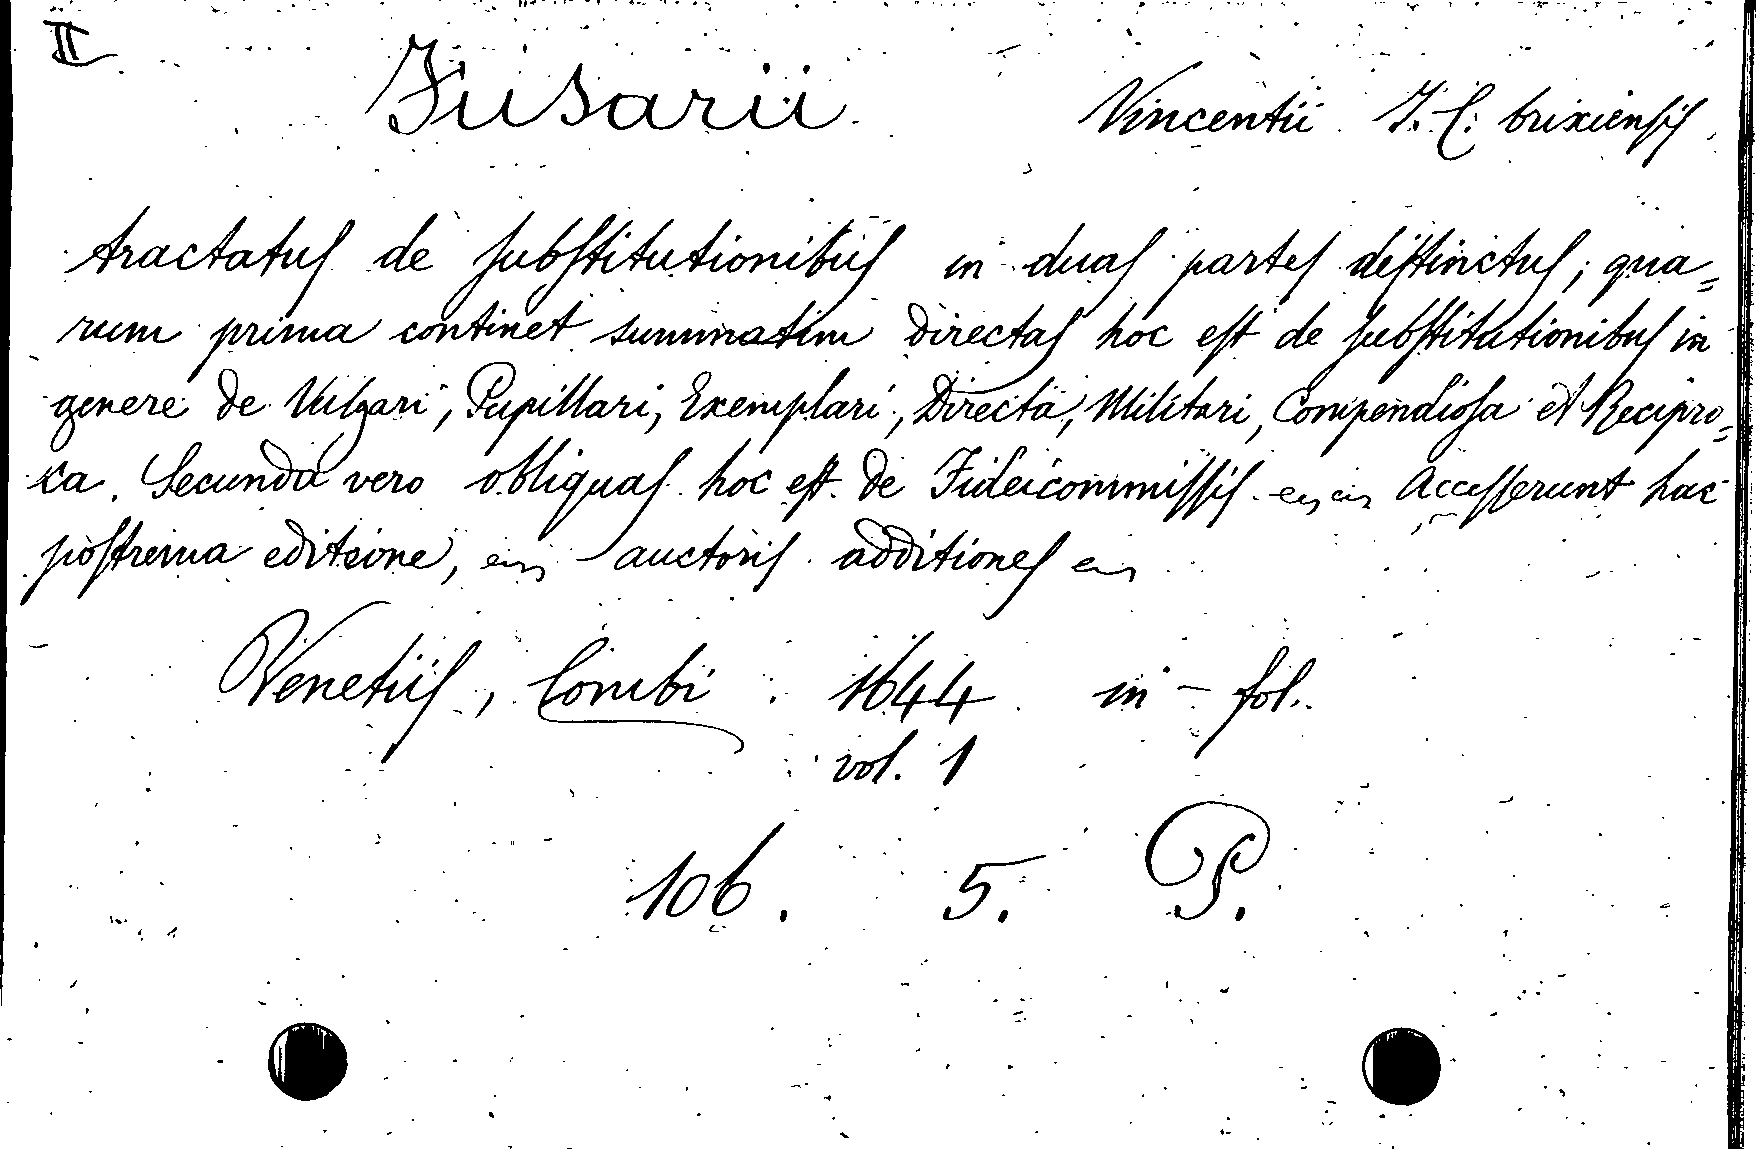 II
Fusarii Vincentii J. C. brixiensis
tractatus de substitutionibus in duas partes distinctus; qua=
rum prima continet summatim directas hoc est de substitutionibus in
genere de Vulgari, Pupillari, Exemplari, Directa, Militari, Compendiosa et Recipro=
ca. Secunda vero obliquas hoc est de Fideicommissis Accesserunt hac
postrema editione, auctoris additiones
Venetiis, Combi 1644 in-fol.
vol. 1
106. 5. P.